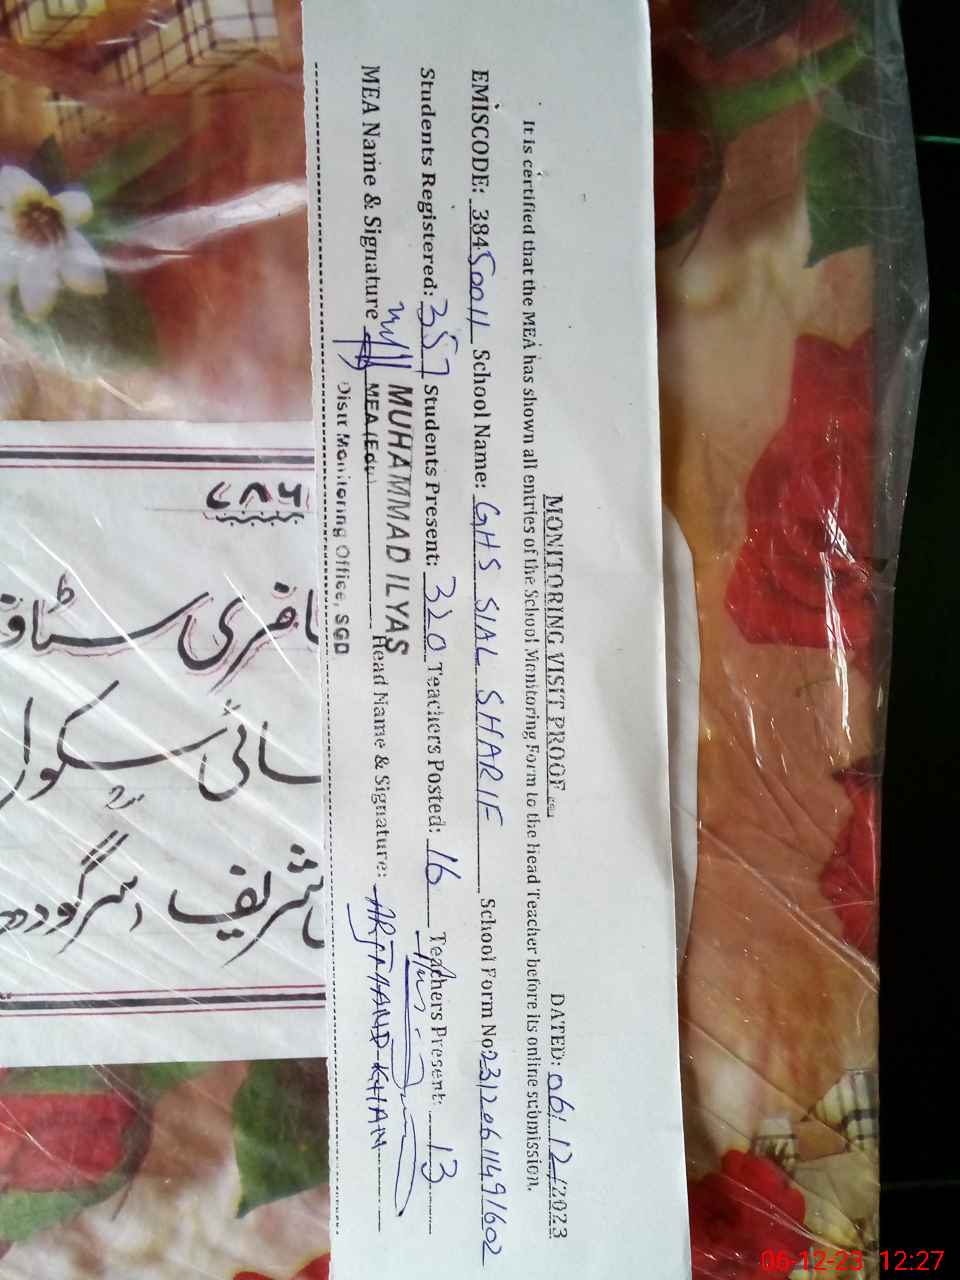 MONITORING VISIT PROOF
DATED: 06/12/2023
It is certified that the MEA has shown all entries of the School Monitoring Form to the head Teacher before its online submission.
EMISCODE: 38450011 School Name: GHS SIAL SHARIF School Form No 23120611491602
Students Registered: 357 Students Present: 320 Teachers Posted: 16 Teachers Present: 13
MEA Name & Signature MUHAMMAD ILYAS Head Name & Signature: KHAN
MEA (Edu)
Distt Monitoring Office, SGD
۷۸۶
سٹاف
سکول
شریف سرگودھا
06-12-23 12:27